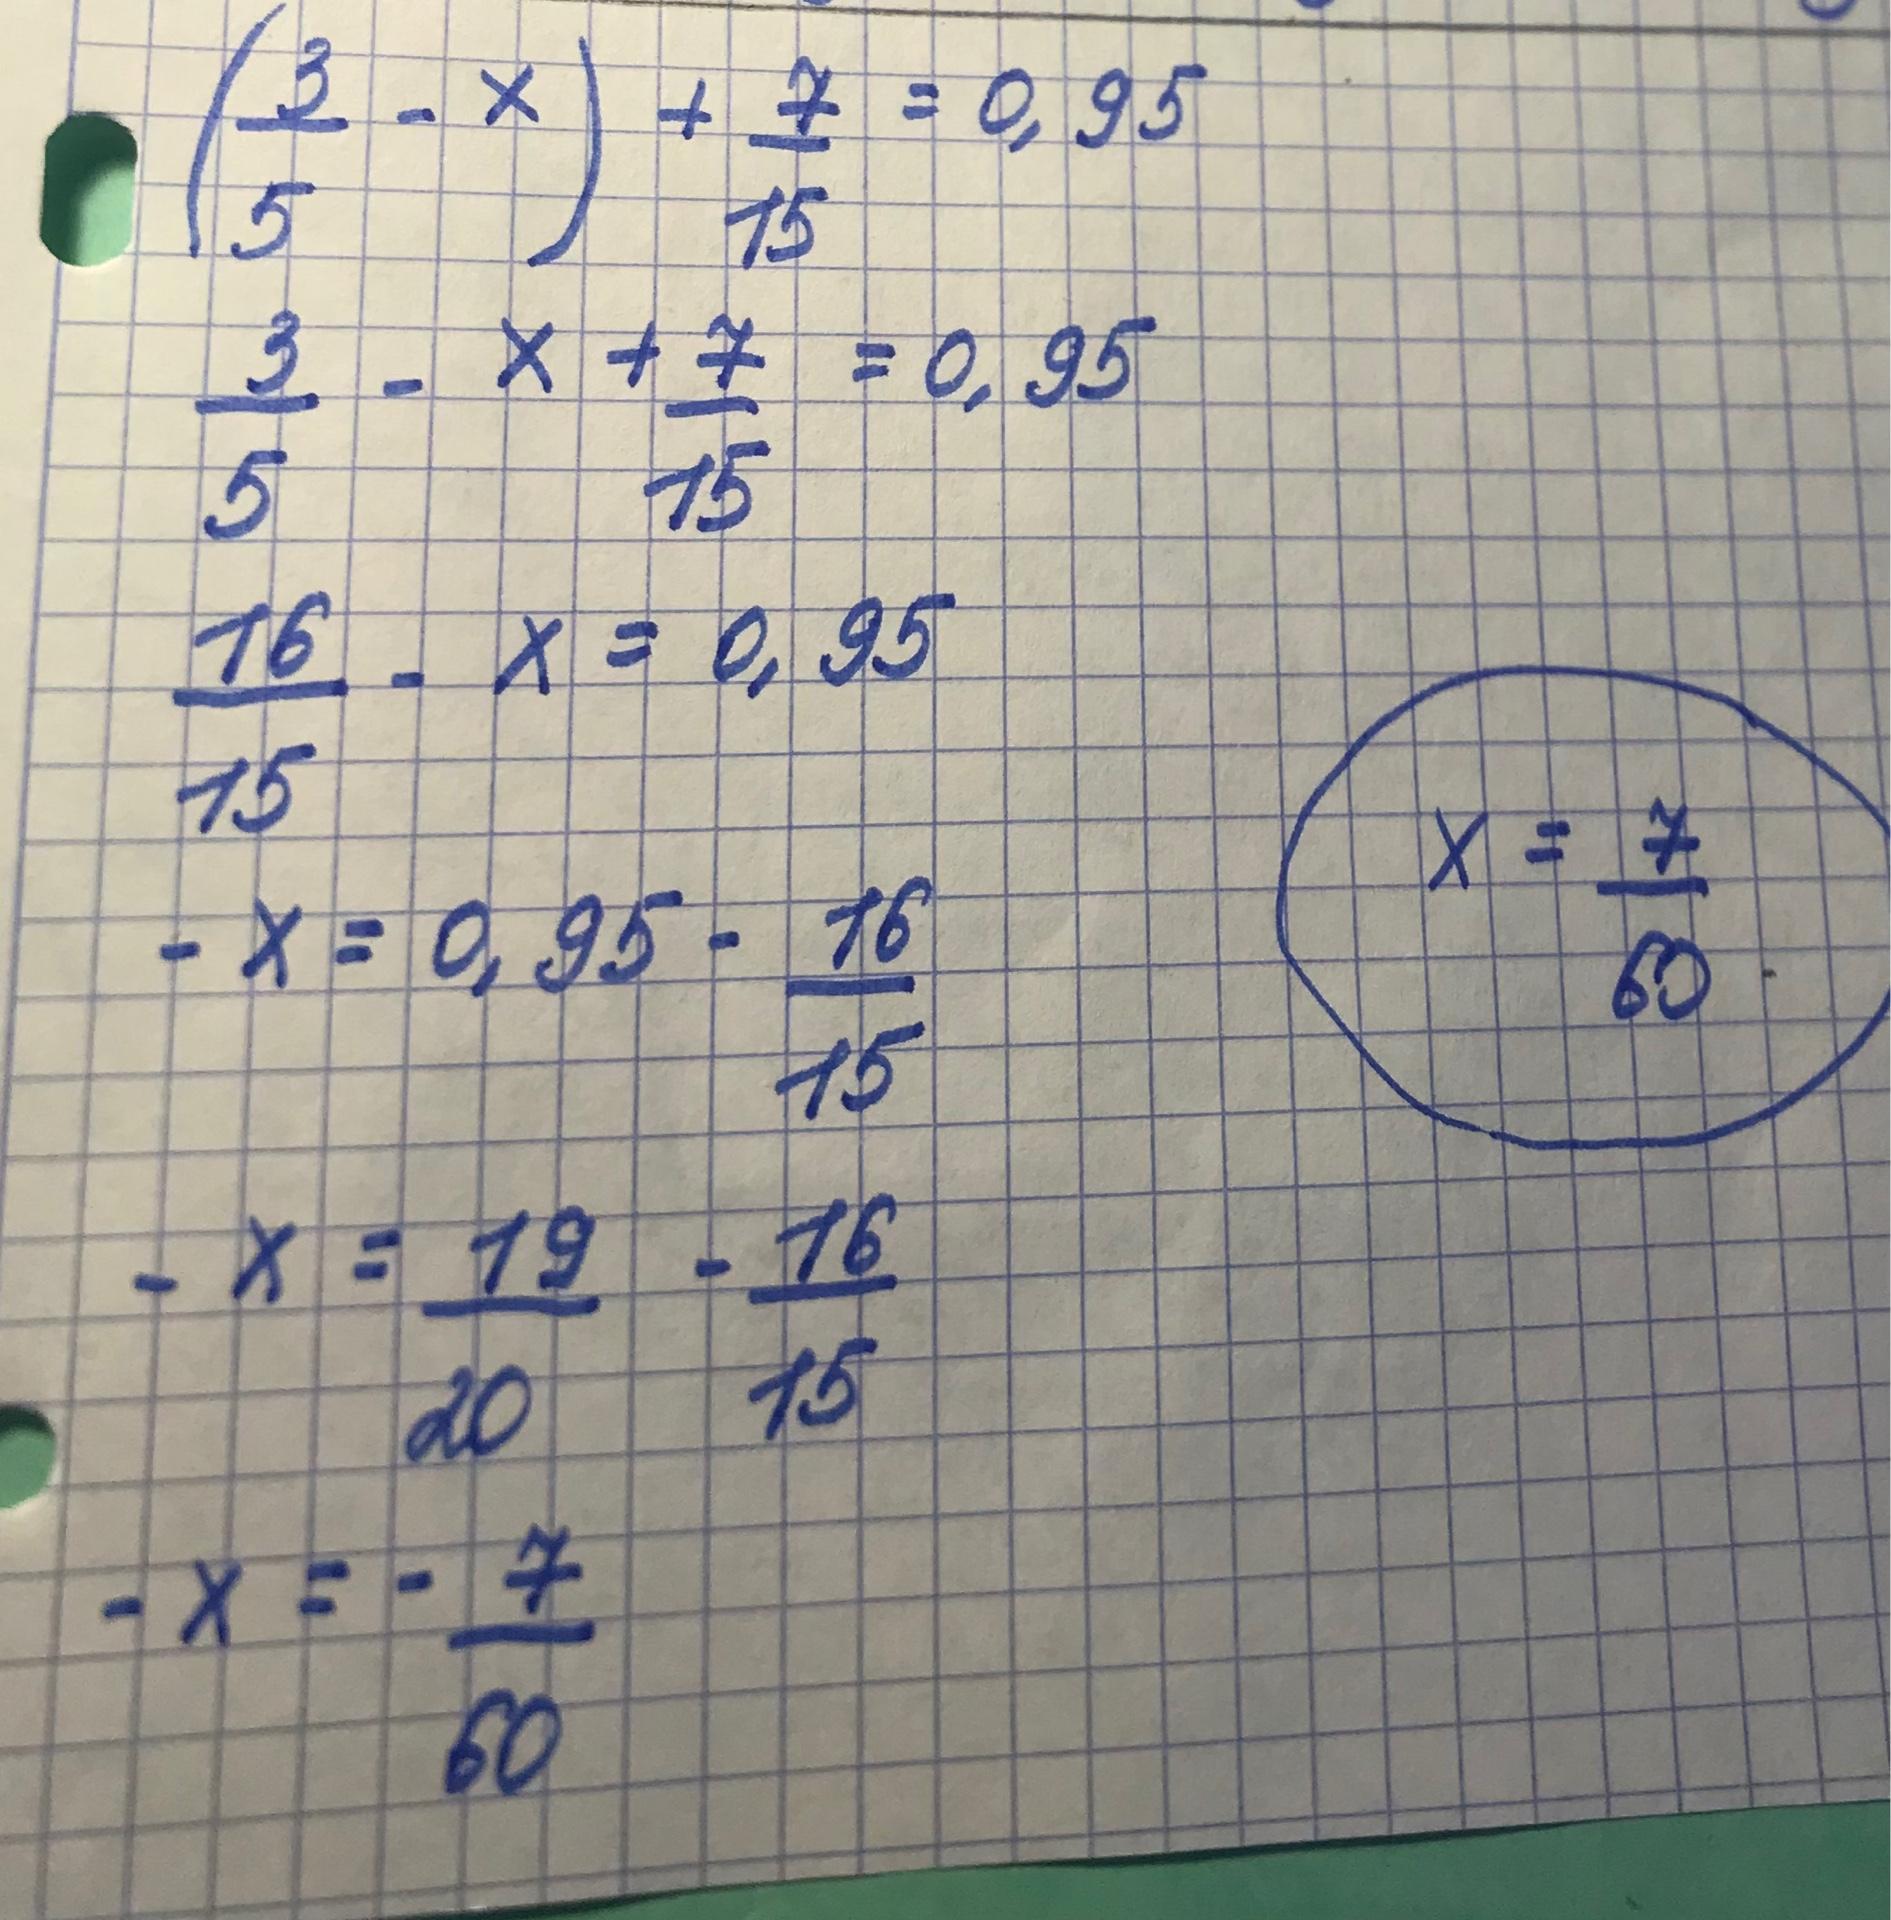 (3/5 - x) + 7/15 = 0,95
3/5 - x + 7/15 = 0,95
16/15 - x = 0,95
- x = 0,95 - 16/15
- x = 19/20 - 16/15
- x = - 7/60
x = 7/60